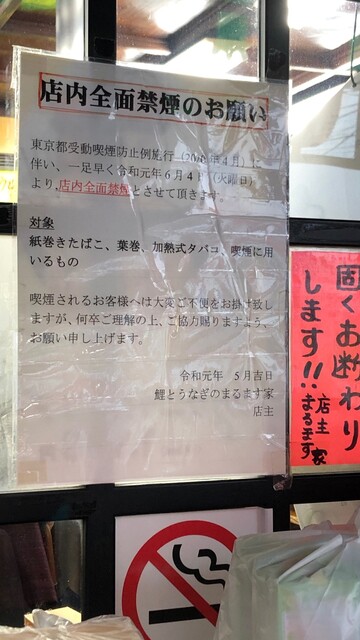 店内全面禁煙のお願い
東京都受動喫煙防止例施行（2020年4月）に
伴い、一足早く令和元年6月4日（火曜日）
より、店内全面禁煙とさせて頂きます
対象
紙巻きたばこ、葉巻、加熱式タバコ、喫煙に用
いるもの
喫煙されるお客様へは大変ご不便をお掛け致し
ますが、何卒ご理解の上、ご協力賜りますよう、
お願い申し上げます。
令和元年　5月吉日
鯉とうなぎのまるます家
店主
固くお断わり
します!!
店主
まるます家